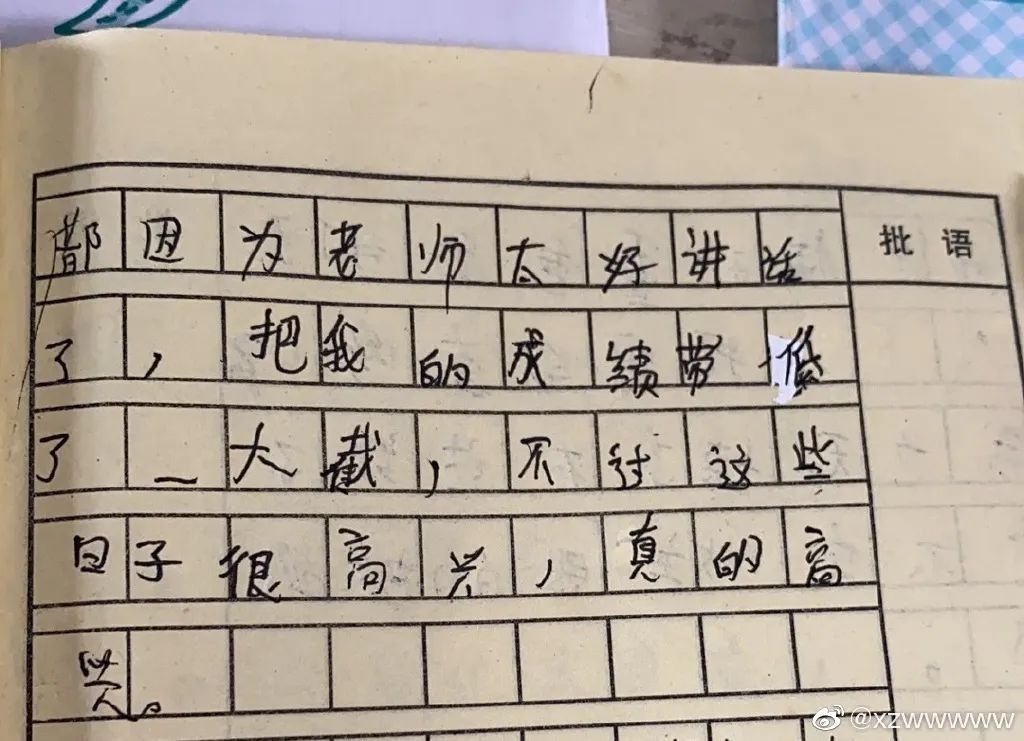 都因为老师太好讲话
批语
了，把我的成绩带低
了一大截，不过这些
日子很高兴，真的高
兴。
@xzwwwwww